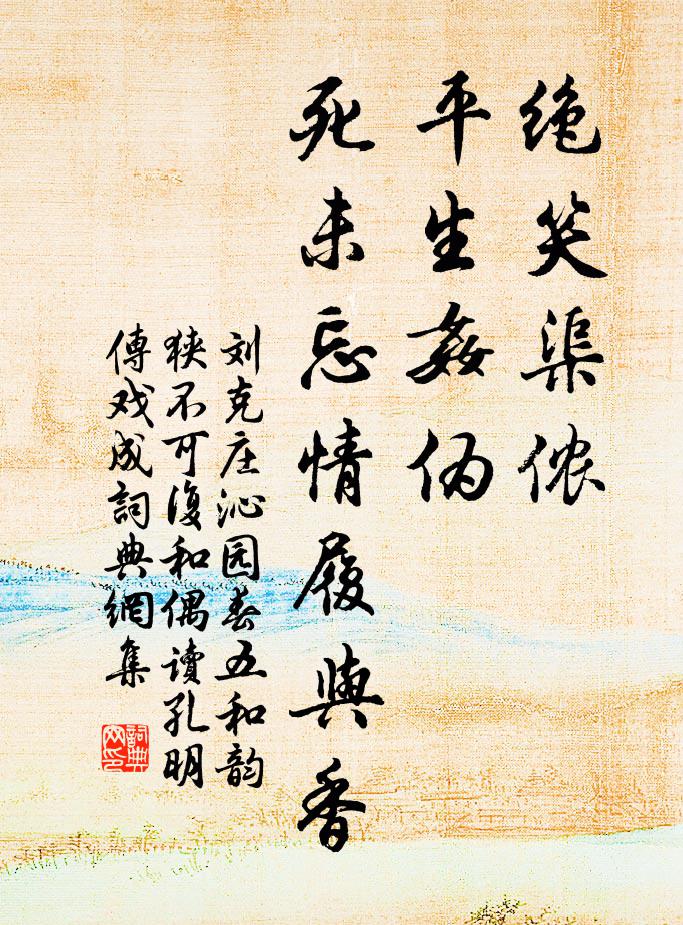 绝笑渠侬
平生奸伪
死未忘情履与香
刘克庄沁园春五和韵
狭不可復和偶读孔明
傅戏成詞典網集
詞典网印